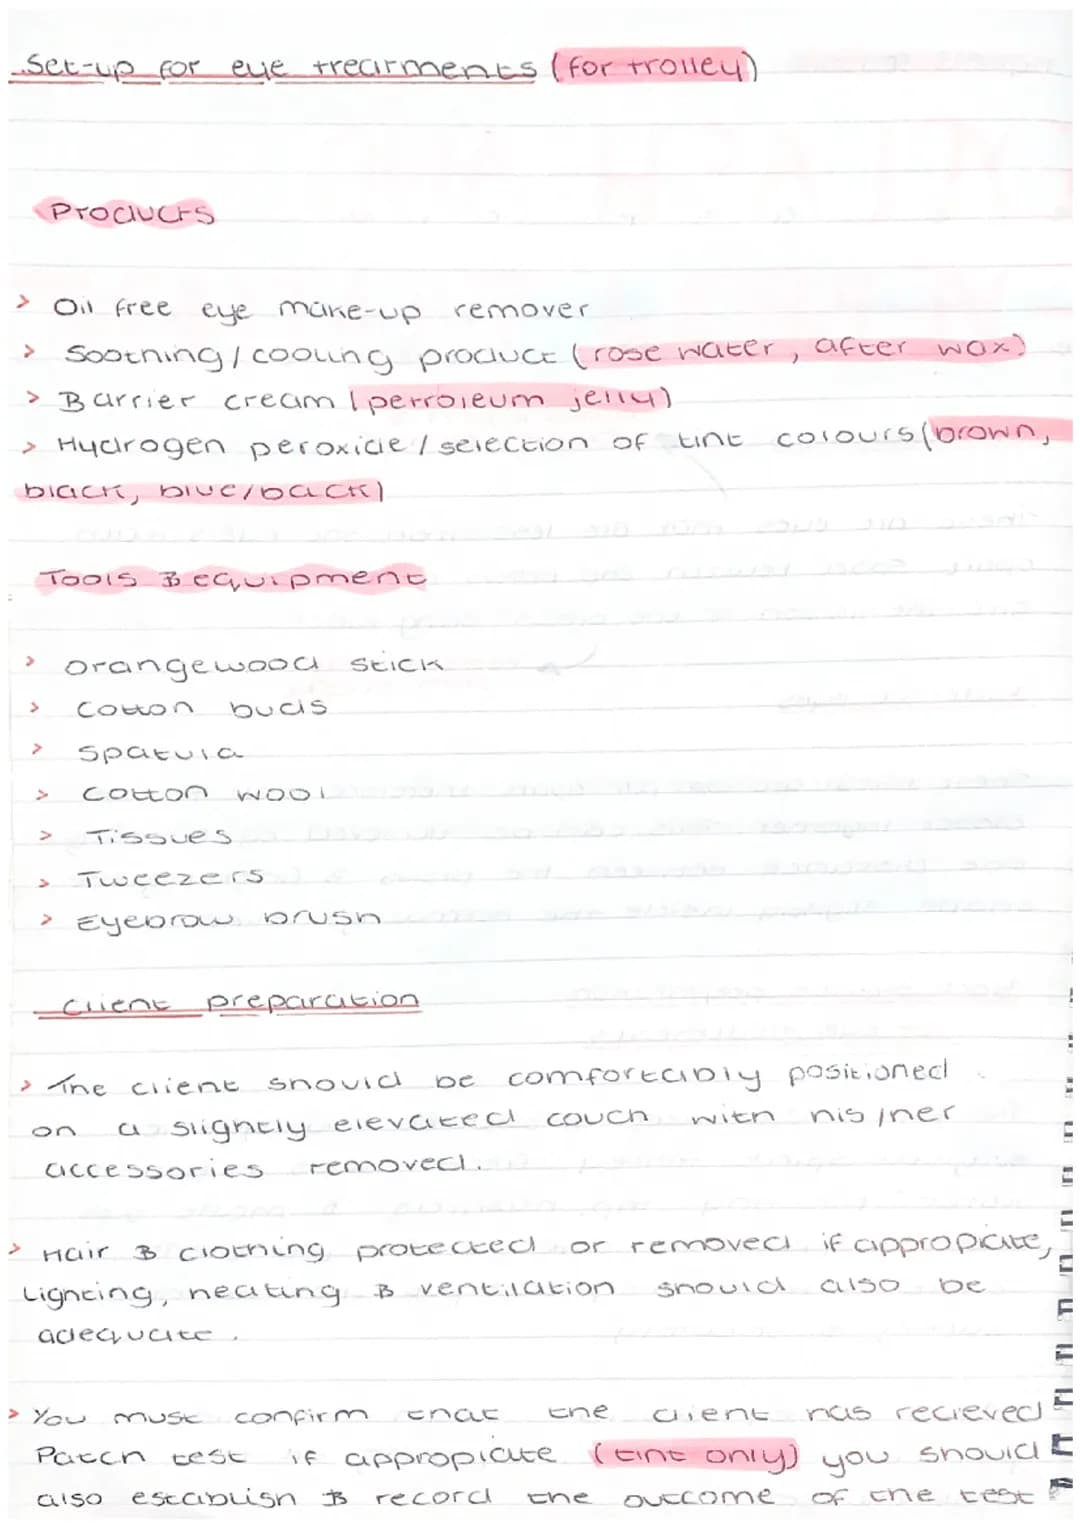 Set-up for eye treatments (for trolley)
Products
> Oil free eye make-up remover
> Soothing/cooling product (rose water, after wax)
> Barrier cream (petroleum jelly)
> Hydrogen peroxide/selection of tint colours (brown,
black, blue/back)
Tools & equipment
> orangewood stick
> Cotton buds
> Spatula
> Cotton wool
> Tissues
> Tweezers
> Eyebrow brush
Client preparation
> The client should be comfortably positioned
on a slightly elevated couch with his/her
accessories removed.
> Hair & clothing protected or removed if appropiate,
Lighting, heating & ventilation should also be
adequate.
> You must confirm that the client has recieved
Patch test if appropiate (tint only) you should
also establish & record the outcome of the test